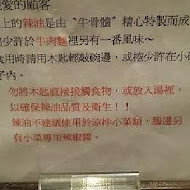 愛的顧客
上的辣油是由“牛骨髓”精心特製而成
少許於牛肉麵裡另有一番風味～
食用時請用木匙輕敲碗邊，或挖少許在小
勿將木匙直接接觸食物，或放入湯裡，
以確保辣油品質及衛生！！
辣油不建議使用於涼拌小菜類，麵邊另
有小菜專用辣椒醬。